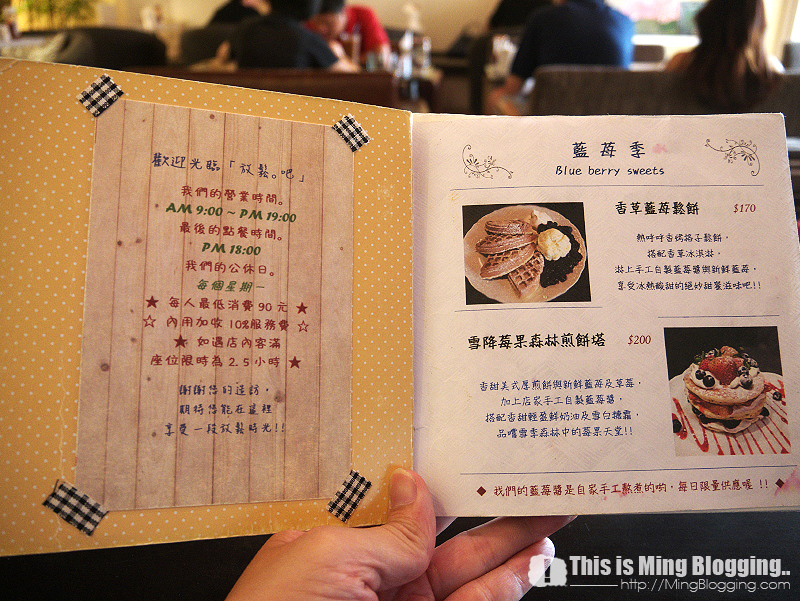 歡迎光臨「放鬆。吧」
我們的營業時間。
AM 9:00 ~ PM 19:00
最後的點餐時間。
PM 18:00
我們的公休日。
每個星期一
★ 每人最低消費 90 元 ★
☆ 內用加收 10%服務費 ☆
★ 如遇店內客滿
座位限時為 2.5 小時 ★
謝謝您的造訪，
期待您能在這裡
享受一段放鬆時光!!
藍苺季
Blue berry sweets
香草藍苺鬆餅 $170
熱呼呼香烤格子鬆餅，
搭配香草冰淇淋，
淋上手工自製藍莓醬與新鮮藍莓，
享受冰熱酸甜的絕妙甜蜜滋味吧!!
雪降莓果森林煎餅塔 $200
香甜美式厚煎餅與新鮮藍莓及草莓，
加上店家手工自製藍莓醬，
搭配香甜輕盈鮮奶油及雪白糖霜，
品嚐雪季森林中的莓果天堂!!
◆ 我們的藍莓醬是自家手工熬煮的喲，每日限量供應喔 !! ◆
This is Ming Blogging..
http://MingBlogging.com